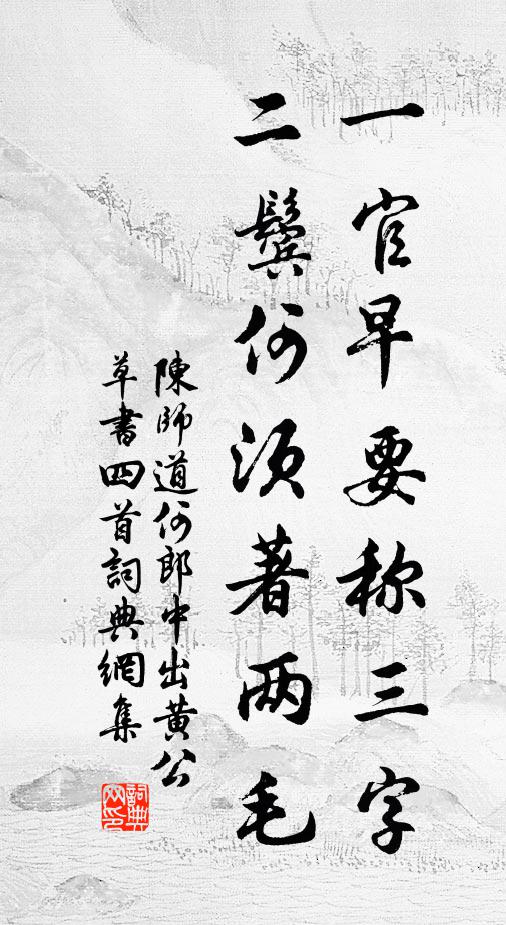 一官早要称三字
二鬓何须著两毛
陳師道何郎中出黄公
草書四首詞典網集
詞典网印